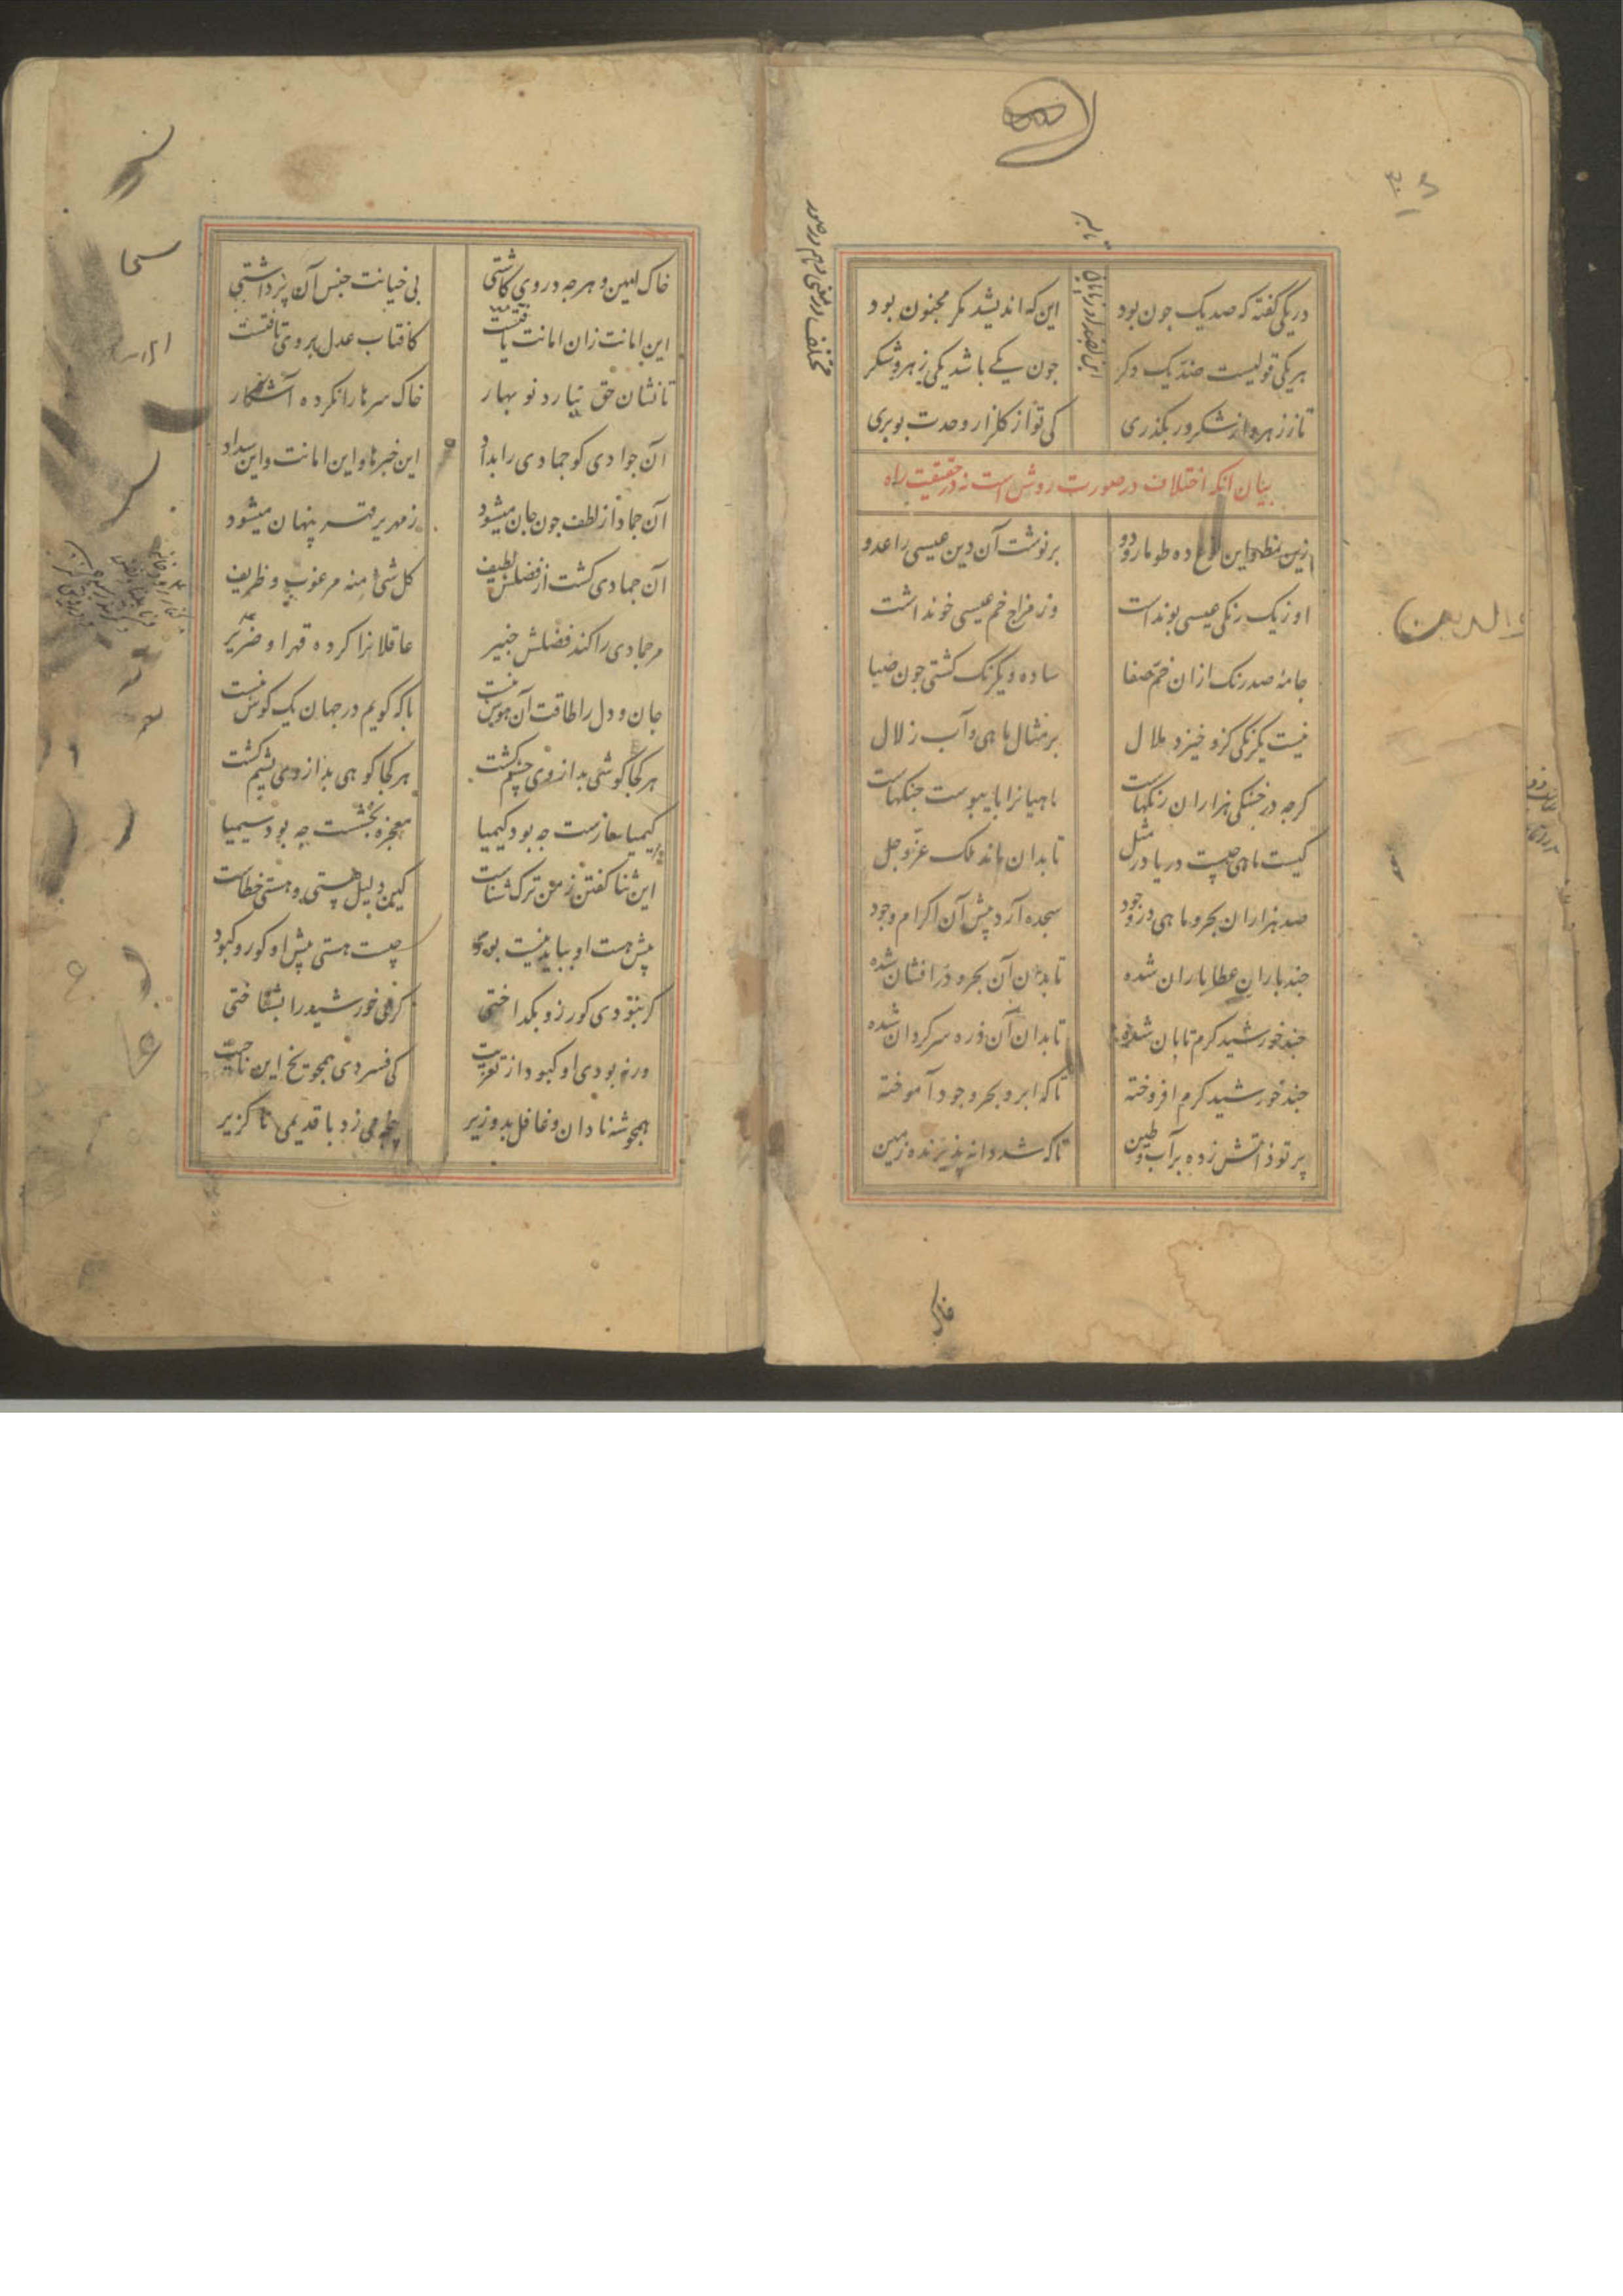 در یکی گفته که صد یک جون بود این که اندیشد مکر مجنون بود
هر یکی قولیست ضد یک دکر جون یکے باشد یکی زهر و شکر
تا ز زهر و از شکر در نکذری کی تو از کلزار وحدت بو بری
بیان آنکه اختلاف در صورت روش است نه در حقیقت راه
ازین نمط وین نوع ده طومار و دو بر نوشت آن دین عیسی را عدو
او ز یک رنکی عیسی بو نداشت وز مزاج خم عیسی خو نداشت
جامهٔ صد رنک ازان خم صفا ساده و یکرنک کشتی جون ضیا
نیست یکرنکی کزو خیزد ملال بر مثال ماهی و آب زلال
کرجه در خشکی هزاران رنکهاست ماهیانرا با یبوست جنکهاست
کیست ماهی جیست دریا در مثل تا بدان ماند ملک عز و جل
صد هزاران بحر و ماهی در وجود سجده آرد پیش آن اکرام و جود
جند باران عطا باران شده تا بدان آن بحر در افشان شده
جند خورشید کرم تابان شده تا بدان آن ذره سرکردان شده
جند خورشید کرم افروخته تا که ابر و بحر وجود آموخته
پرتو ذاتش زده بر آب و طین تا که شد دانه پذیرنده زمین
خاک
خاک امین و هرجه در وی کاشتی بی خیانت جنس آن برداشتی
این امانت زان امانت یافتست کافتاب عدل بر وی تافتست
تا نشان حق نیارد نو بهار خاک سرها را نکرده آشکار
آن جوادی کو جمادی را بداد این خبرها و این امانت و این سداد
آن جماد از لطف جون جان میشود زمهریر قهر پنهان میشود
آن جمادی کشت از فضلش لطیف کل شئ منه مرغوب و ظریف
مر جمادی را کند فضلش خبیر عاقلانرا کرده قهر او ضریر
جان و دل را طاقت آن جوش نیست با که کویم در جهان یک کوش نیست
هر کجا کوشی بد از وی جشم کشت هر کجا کوهی بد از وی یشم کشت
کیمیا سازست جه بود کیمیا معجزه بخشست جه بود سیمیا
این ثنا کفتن ز من ترک ثناست کین دلیل هستی و هستی خطاست
پیش هست او بباید نیست بود جیست هستی پیش او کور و کبود
کر نبودی کور زو بکداختی کرمی خورشید را بشناختی
ور نه بودی او کبود از تعزیت کی فسردی همجو یخ این ناحیت
همجو شه نادان و غافل بد وزیر پنجه می زد با قدیمی ناکزیر